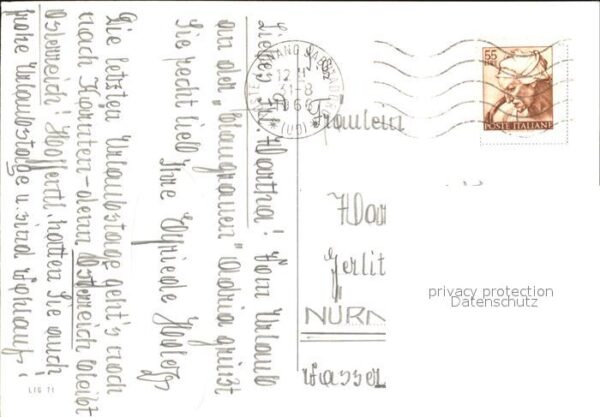 Liebes Frl. Martha! Vom Urlaub
an der "blaugrauen" Adria grüßt
Sie recht lieb Ihre Elfriede
Die letzten Urlaubstage geht's noch
nach Kärnten - denn Österreich bleibt
Österreich! Hoffentl. hatten Sie auch
frohe Urlaubstage u. sind wohlauf!
LIG 71
12
31-8
(UD)
55
POSTE ITALIANE
Fräulein
Mar
Zerlit
NÜRN
Wasser
privacy protection
Datenschutz